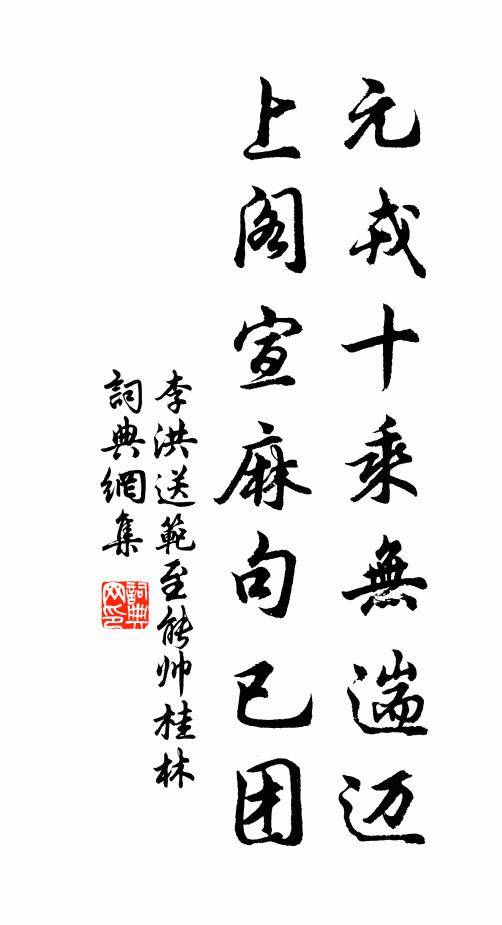 元戎十乘無遄迈
上阁宣麻句已团
李洪送範至能帅桂林
詞典網集
詞典网印